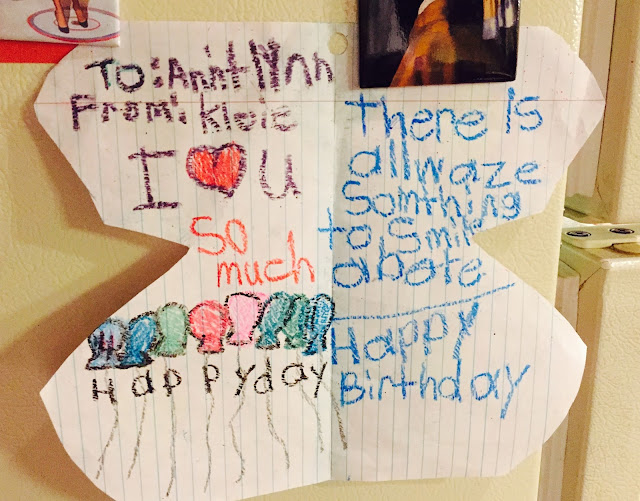 To: Annt lynn
From: kloie
I ❤ U
So
much
Happyday
There Is
allwaze
Somthing
to Smile
abote
Happy
Birthday